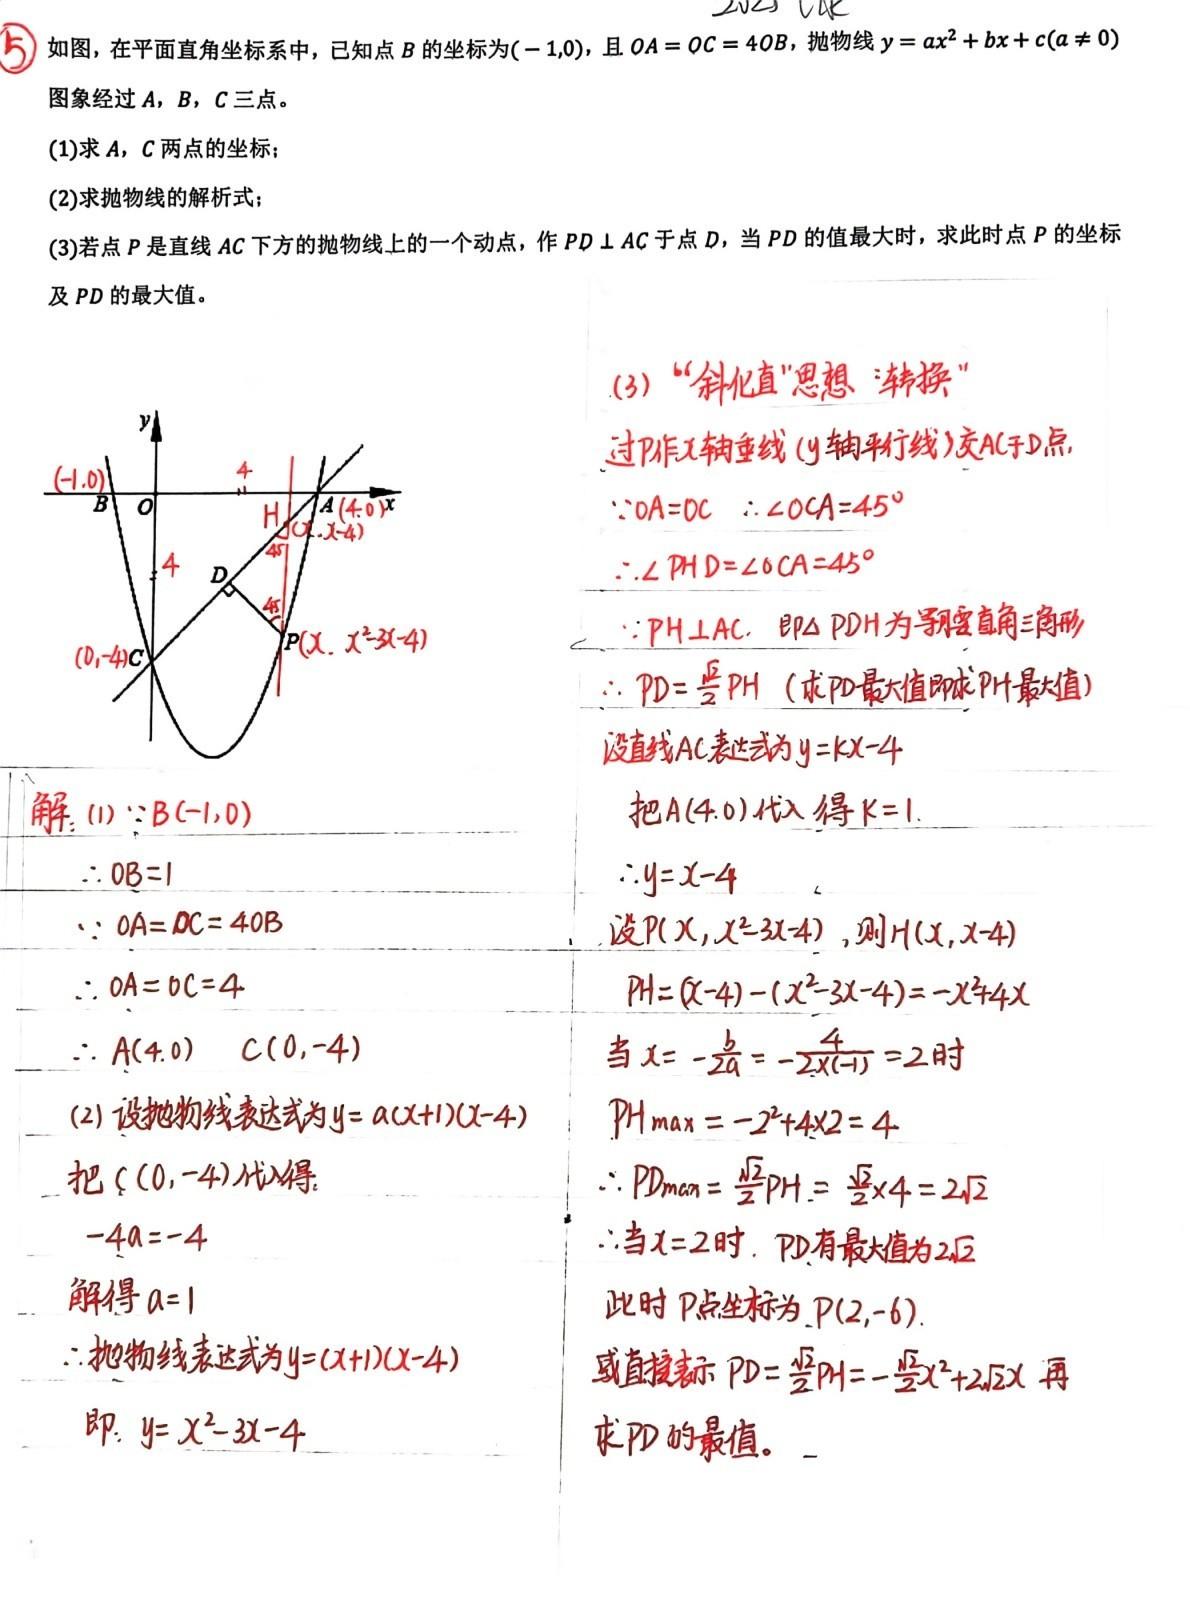 ⑤ 如图，在平面直角坐标系中，已知点 B 的坐标为(－1,0)，且 OA = OC = 4OB，抛物线 y = ax² + bx + c(a ≠ 0)
图象经过 A，B，C 三点。
(1)求 A，C 两点的坐标；
(2)求抛物线的解析式；
(3)若点 P 是直线 AC 下方的抛物线上的一个动点，作 PD ⊥ AC 于点 D，当 PD 的值最大时，求此时点 P 的坐标
及 PD 的最大值。
y
(-1.0)
4
B
O
H
A
(4.0)
x
(x.x-4)
45
4
D
45
P(x. x²-3x-4)
(0,-4)
C
解: (1) ∵B(-1,0)
∴OB=1
∵ OA=OC=4OB
∴ OA=OC=4
∴ A(4.0) C(0,-4)
(2) 设抛物线表达式为y= a(x+1)(x-4)
把 C(0,-4)代入得:
-4a=-4
解得 a=1
∴抛物线表达式为y=(x+1)(x-4)
即: y= x²-3x-4
(3) “斜化直”思想 :转换”
过P作x轴垂线(y轴平行线)交AC于D点,
∵OA=OC ∴∠OCA=45°
∴∠PHD=∠OCA=45°
∵PH⊥AC. 即△PDH为等腰直角三角形
∴ PD=√2/2 PH (求PD最大值即求PH最大值)
设直线AC表达式为y=kx-4
把A(4.0)代入 得K=1.
∴y=x-4
设P(x, x²-3x-4) ,则H(x, x-4)
PH=(x-4)-(x²-3x-4)=-x²+4x
当 x= -b/2a = -4/2×(-1) =2时
PHmax = -2²+4×2=4
∴ PDmax= √2/2 PH = √2/2 ×4=2√2
∴当x=2时. PD有最大值为2√2
此时 P点坐标为 P(2,-6).
或直接表示 PD=√2/2 PH=-√2/2 x²+2√2x 再
求PD的最值。